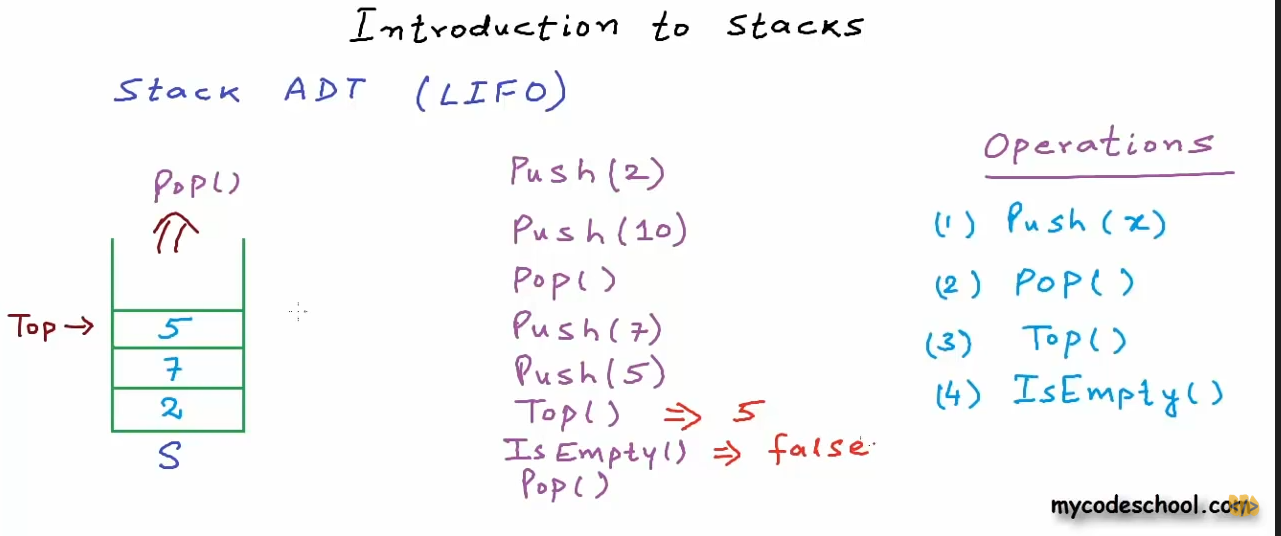 Introduction to stacks
Stack ADT (LIFO)
Pop()
Top →
5
7
2
S
Push(2)
Push(10)
Pop()
Push(7)
Push(5)
Top() ⇒ 5
IsEmpty() ⇒ false
Pop()
Operations
(1) Push(x)
(2) Pop()
(3) Top()
(4) IsEmpty()
mycodeschool.com